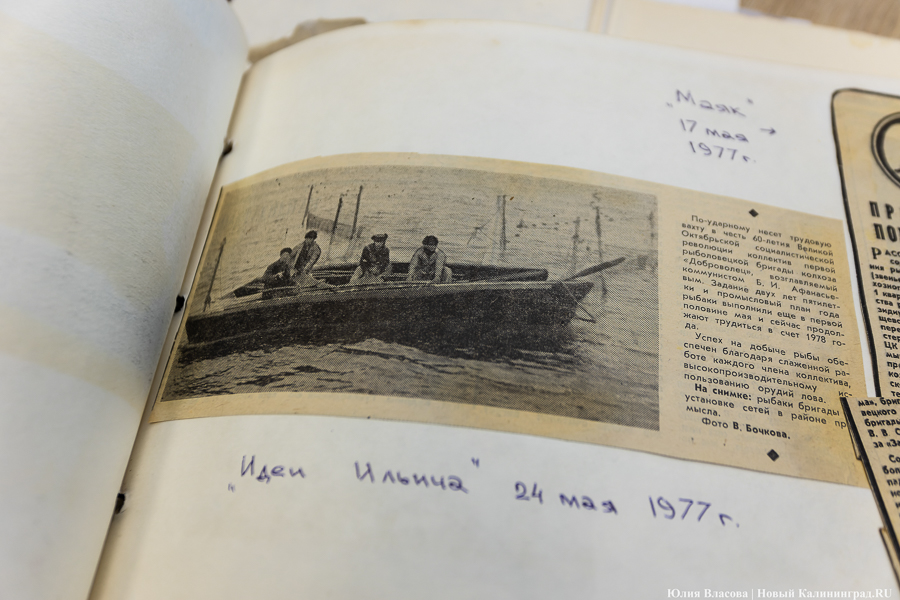 „Маяк"
17 мая →
1977г.
По-ударному несет трудовую
вахту в честь 60-летия Великой
Октябрьской социалистической
революции коллектив первой
рыболовецкой бригады колхоза
«Доброволец», возглавляемый
коммунистом Б. И. Афанасье-
вым. Задание двух лет пятилет-
ки и промысловый план года
рыбаки выполнили еще в первой
половине мая и сейчас продол-
жают трудиться в счет 1978 го-
да.
Успех на добыче рыбы обе-
спечен благодаря слаженной ра-
боте каждого члена коллектива,
высокопроизводительному ис-
пользованию орудий лова.
На снимке: рыбаки бригады
установке сетей в районе пр
мысла.
Фото В. Бочкова.
„Идеи Ильича" 24 мая 1977г.
ПР
ПО
1 квар
ЦК
В. В. С
за «За
Юлия Власова | Новый Калининград.RU